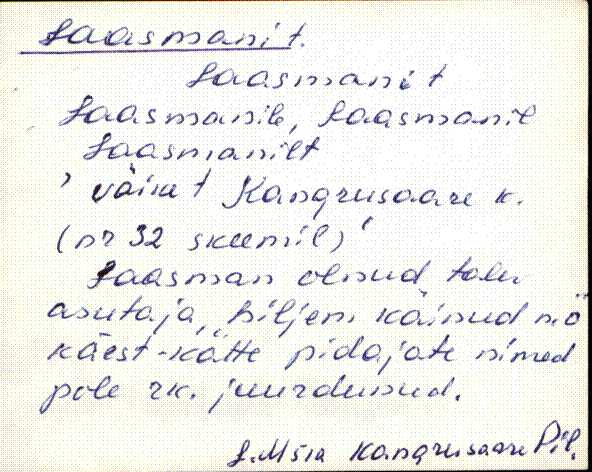 Saasmani t.
Saasmani t
Saasmanile, Saasmanil
Saasmanilt
' väike t Kangrusaare k.
(nr 32 skeemil)
Saasman olnud talu
asutaja, hiljem käinud mõ
käest-kätte pidajate nimed
pole rk. juurdunud.
Kangrusaare Pil.